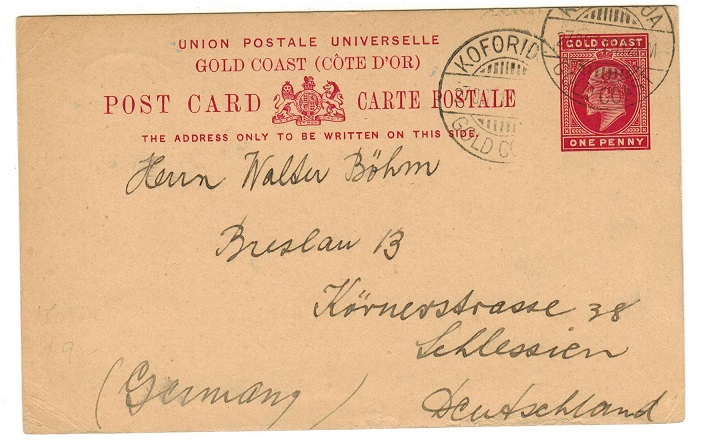 UNION POSTALE UNIVERSELLE
GOLD COAST (CÔTE D'OR)
POST CARD CARTE POSTALE
THE ADDRESS ONLY TO BE WRITTEN ON THIS SIDE.
GOLD COAST
ONE PENNY
KOFORID
GOLD CO
Herrn Walter Böhm
Breslau 13
Körnerstrasse 38
Schlessien
(Germany) Deutschland